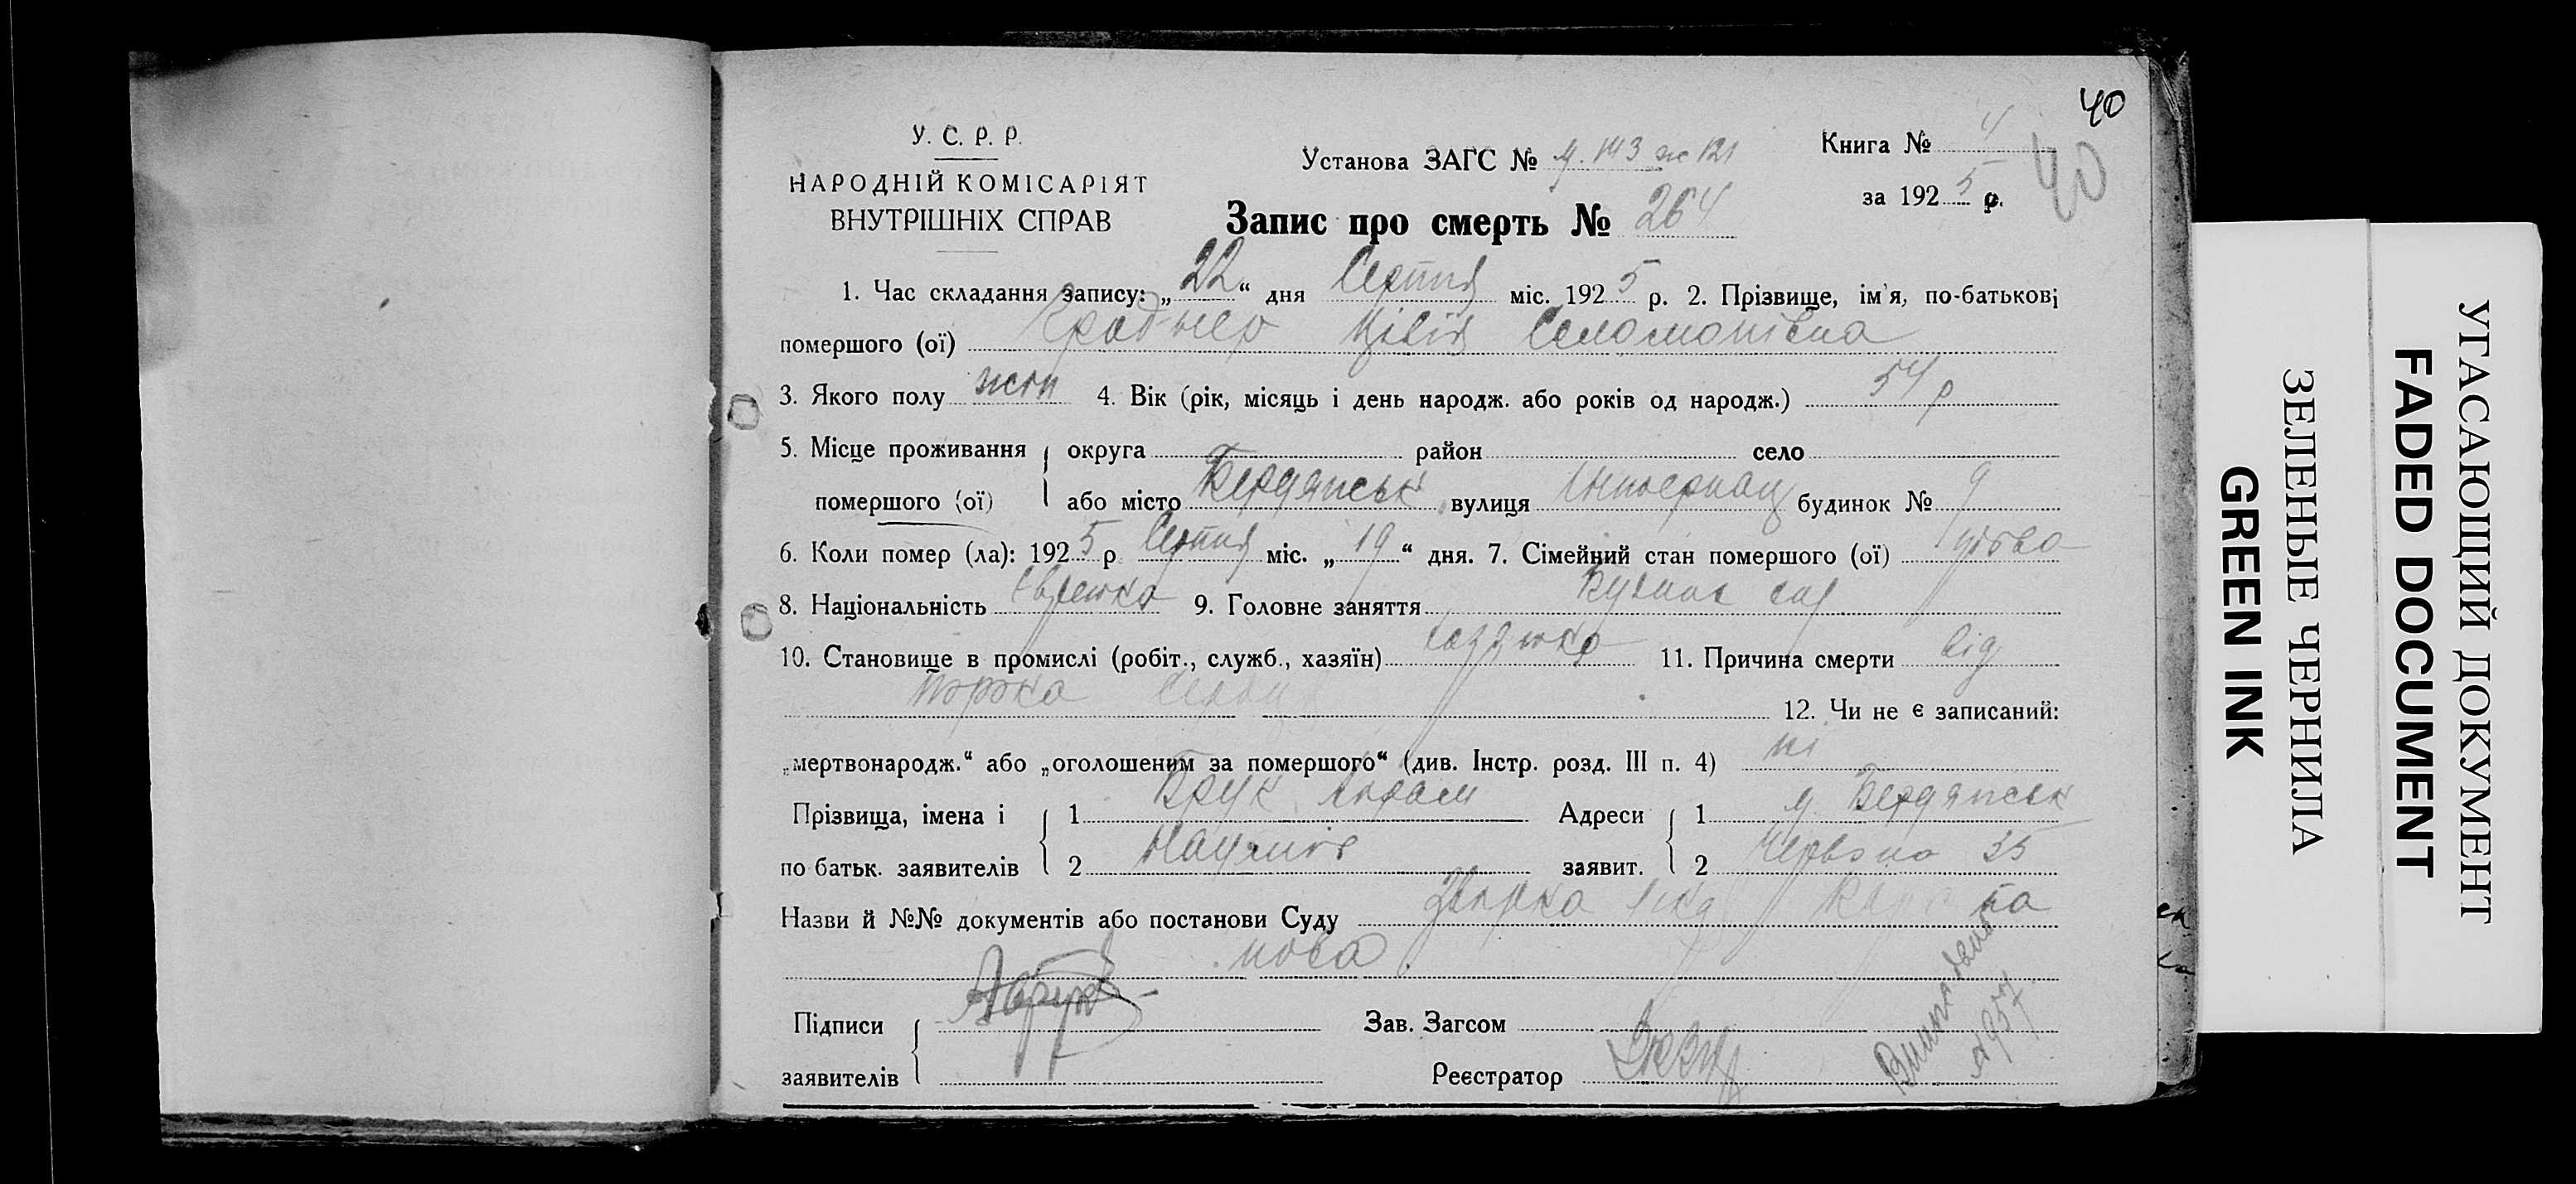 40
У. С. Р. Р.
НАРОДНІЙ КОМІСАРІЯТ
ВНУТРІШНІХ СПРАВ
Установа ЗАГС №
Книга № 4
за 1925 р.
40
Запис про смерть № 264
1. Час складання запису: „22“ дня Серпня міс. 1925 р. 2. Прізвище, ім'я, по-батькові
помершого (ої) Цівія Соломонівна
3. Якого полу жін 4. Вік (рік, місяць і день народж. або років од народж.) 54 р
5. Місце проживання округа район село
помершого (ої) або місто Бердянськ вулиця Інтернац будинок № 9
6. Коли помер (ла): 1925 р Серпня міс. „19“ дня. 7. Сімейний стан помершого (ої) удова
8. Національність Єврейка 9. Головне заняття
10. Становище в промислі (робіт., служб., хазяїн) хазяйка 11. Причина смерти від
порока серця
12. Чи не є записаний:
„мертвонародж.“ або „оголошеним за помершого“ (див. Інстр. розд. III п. 4) ні
Прізвища, імена і 1 Брук Абрам Адреси 1 м. Бердянськ
по батьк. заявителів 2 Наумів заявит. 2 Червона 35
Назви й №№ документів або постанови Суду
нова
Підписи Абрук Зав. Загсом
заявителів Реєстратор
УГАСАЮЩИЙ ДОКУМЕНТ
FADED DOCUMENT
ЗЕЛЕНЫЕ ЧЕРНИЛА
GREEN INK